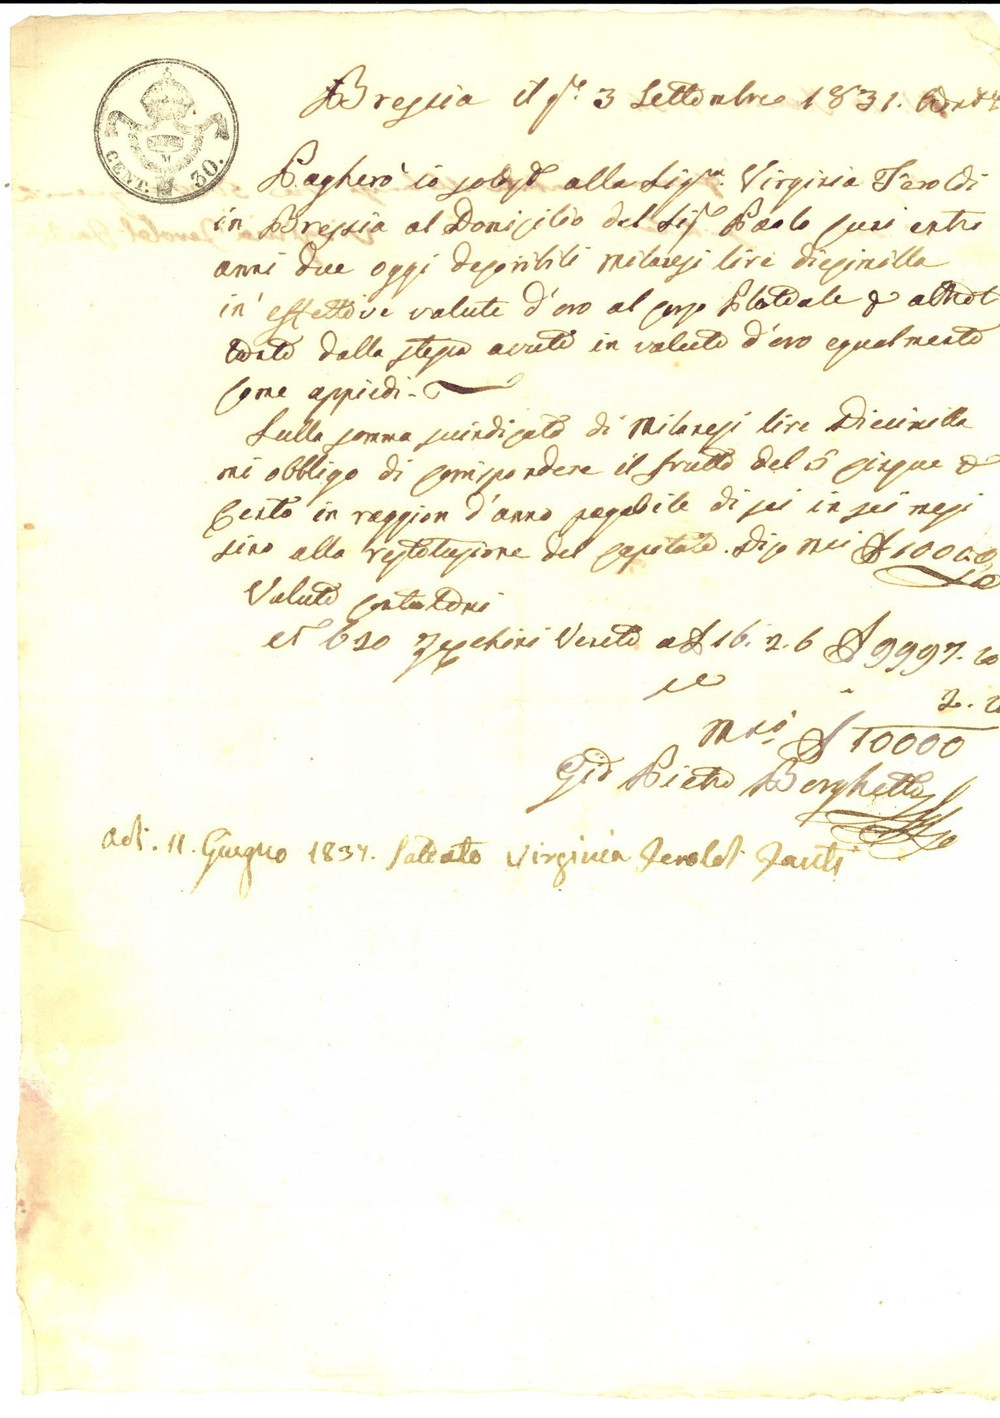 CENT. 30.
Brescia il gno. 3 Settembre 1831.
Pagherò io sotto alla Sigra. Virginia Feroldi
in Brescia al Domicilio del Sigr Paolo suei entro
anni due oggi decoribili milanesi lire diecimilla
in effettive valute d'oro al corso Plateale &
dalla stessa avute in valute d'oro egualmente
come appiedi.
Sulla somma suindicata di Milanesi lire Diecimilla
mi obbligo di corrispondere il frutto del 5 cinque &
Cento in raggion d'anno pagabile di sei in sei mesi
sino alla restituzione del capitale. Dico £ 10000
Valute
n 620 Zecchini Veneti a £ 16. 2. 6 £ 9997. 10
2. 10
£ 10000
Gio Pietro Borghetti
adi. 11. Giugno 1834. Saldato Virginia Feroldi Fanti